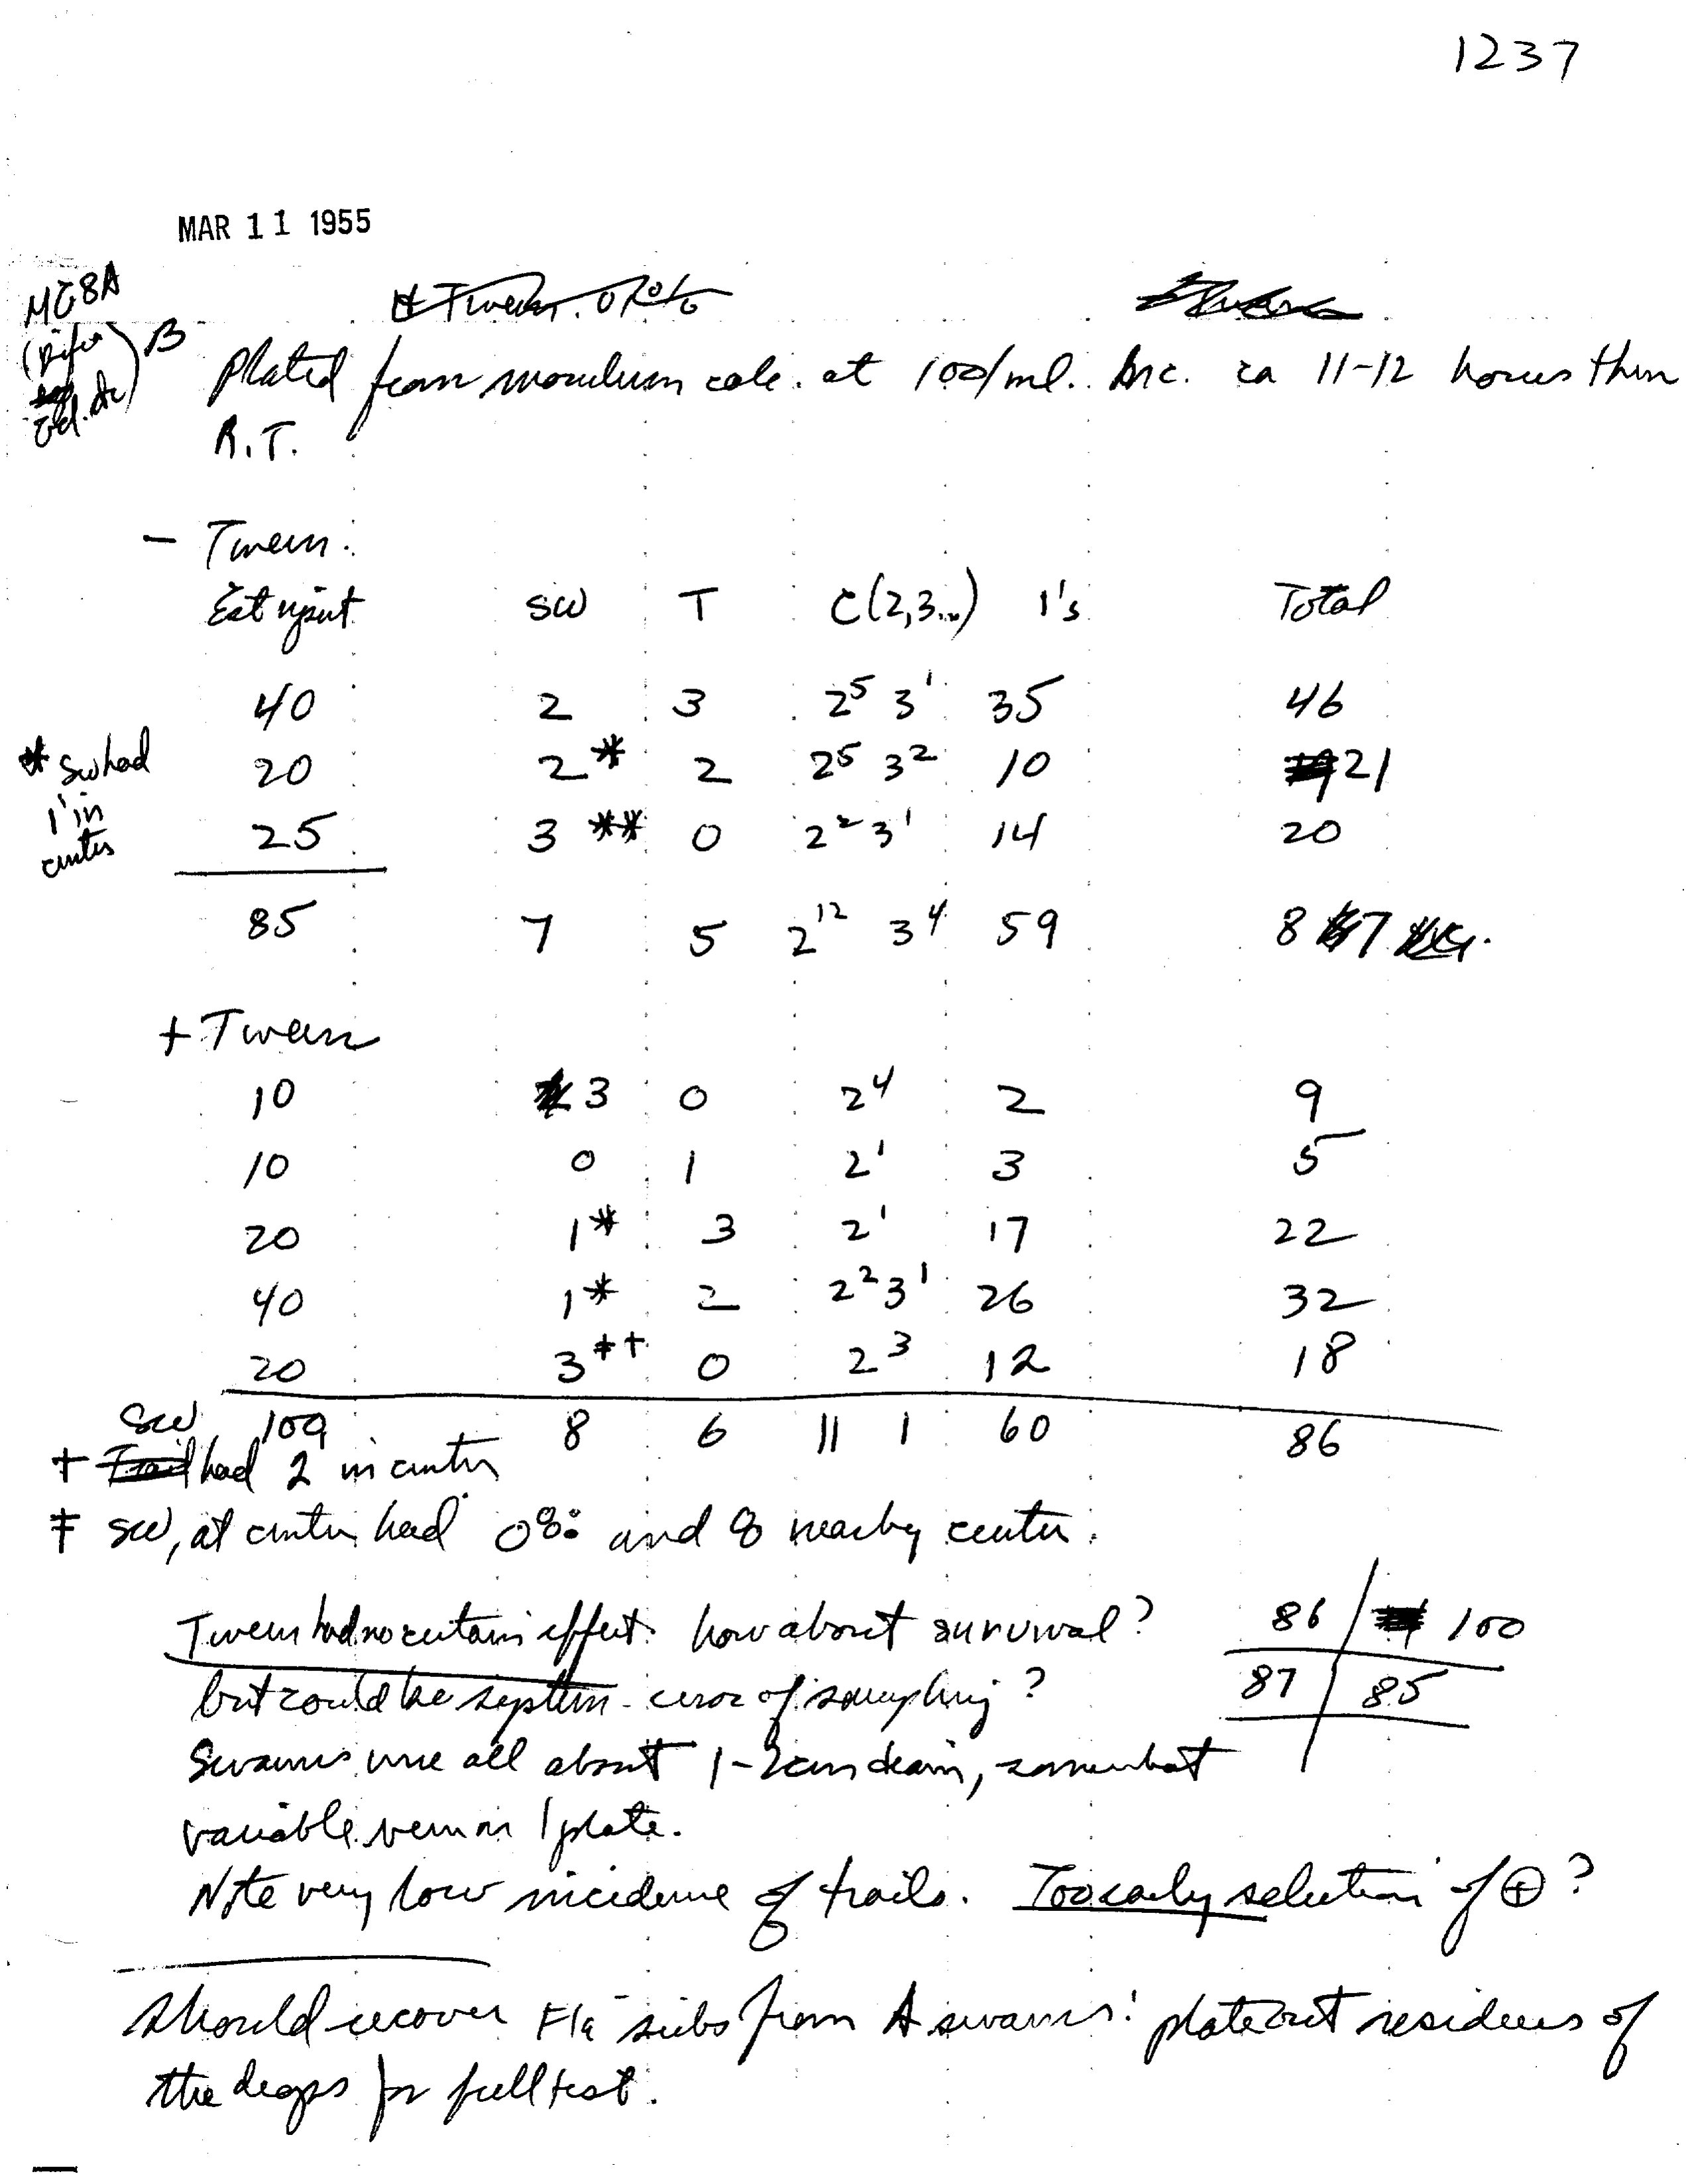 1237
MAR 11 1955
+ Tween .01%
MG8A
(Difco
Gel. etc) B
Plated from monidum calc. at 100/ml. Inc. ca 11-12 hours then
R.T.
- Tween.
Est input SW T C(2,3...) 1's Total
40 2 3 2⁵ 3¹ 35 46
20 2* 2 2⁵ 3² 10 21
25 3** 0 2² 3¹ 14 20
* sw had
1 in
center
85 7 5 2¹² 3⁴ 59 87
+ Tween
10 3 0 2⁴ 2 9
10 0 1 2¹ 3 5
20 1* 3 2¹ 17 22
40 1* 2 2² 3¹ 26 32
20 3‡† 0 2³ 12 18
100 8 6 11 1 60 86
† SW had 2 in center
‡ SW, at center had and 8 nearby center.
Tween had no certain effect. how about survival? 86 100
but could be system. error of sampling? 87 85
Swarms were all about 1-2cm diam, somewhat
variable even on 1 plate.
Note very low incidence of trails. Too early selection of ⊕?
Should recover Fla⁻ subs from A swarms: plate out residues of
the drops for full test.